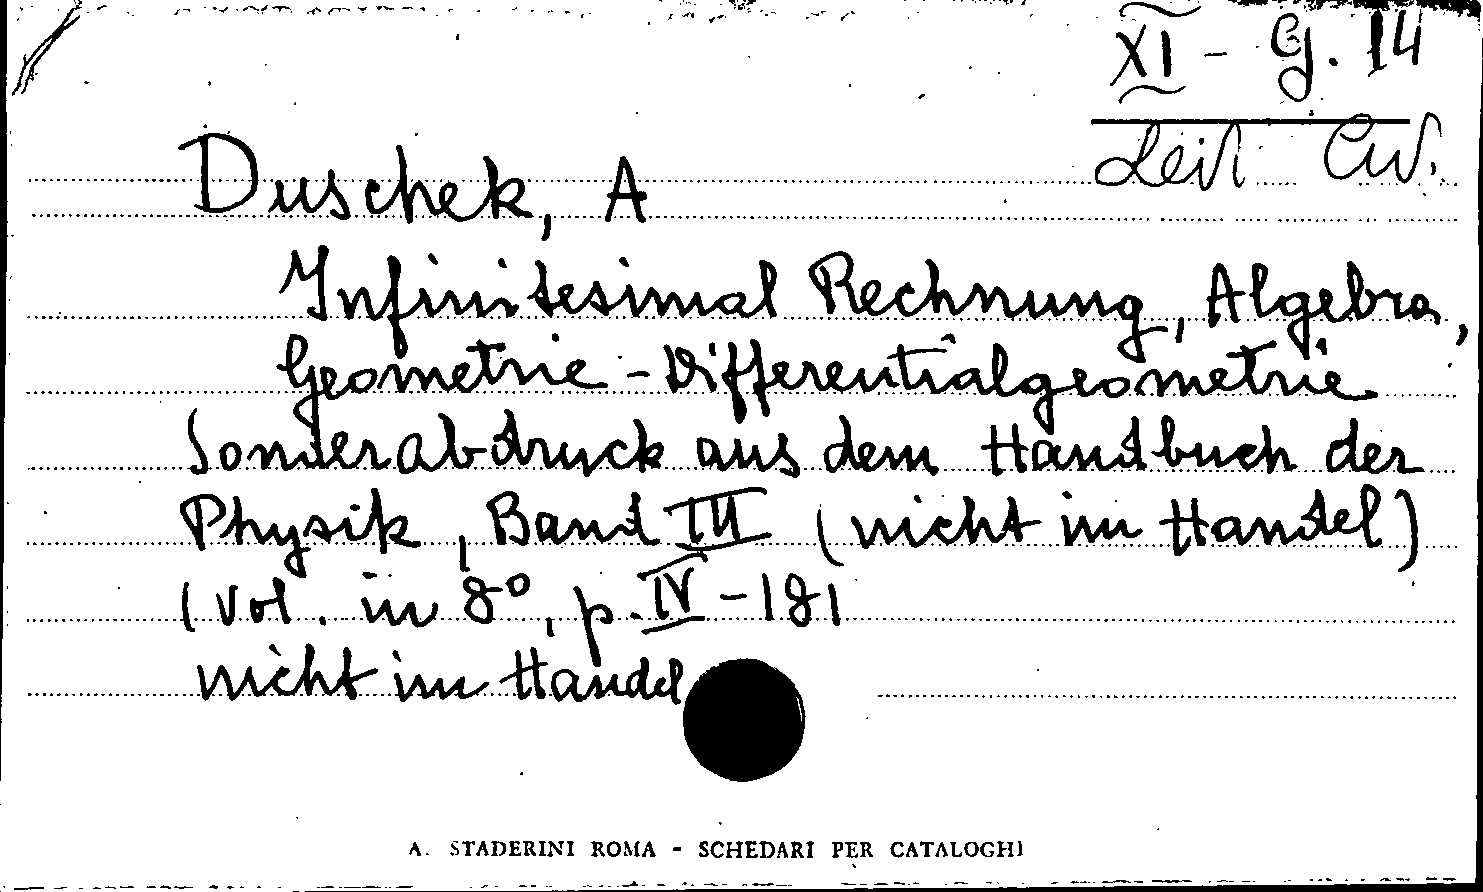 XI - G. 14
Duschek, A
Infinitesimal Rechnung, Algebra,
Geometrie - Differentialgeometrie
Sonderabdruck aus dem Handbuch der
Physik, Band III (nicht im Handel)
(Vol. in 8°, p. IV - 181
nicht im Handel
A. STADERINI ROMA - SCHEDARI PER CATALOGHI